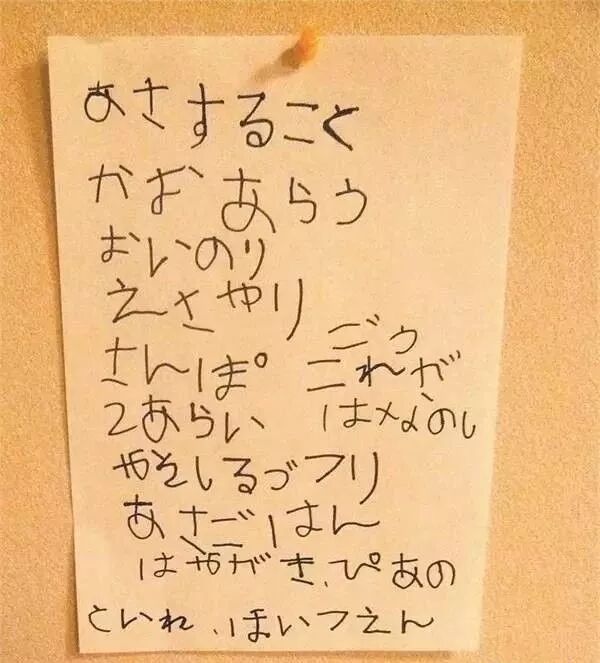 あさすること
かおあらう
おいのり
えさやり
ごう
さんぽ これが
2あらい はなのし
みそしるづフリ
あさごはん
はみがき、ぴあの
といれ、ほいつえん